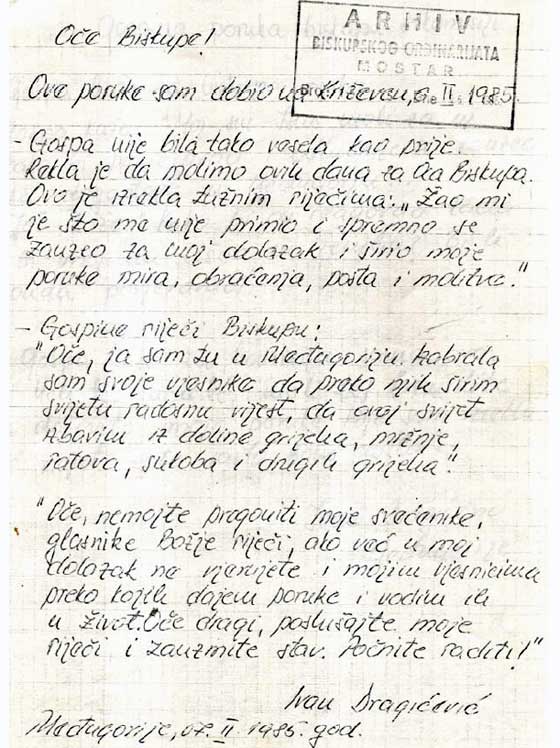 ARHIV
BISKUPSKOG ORDINARIJATA
MOSTAR
Oče Biskupe!
Ove poruke sam dobio na Križevcu, 6. II. 1985.
- Gospa nije bila tako vesela kao prije.
Rekla je da molimo ovih dana za Oca Biskupa.
Ovo je izrekla tužnim riječima: "Žao mi
je što me nije primio i spremno se
zauzeo za moj dolazak i širio moje
poruke mira, obraćenja, posta i molitve."
- Gospine riječi Biskupu:
"Oče, ja sam tu u Međugorju. Izabrala
sam svoje vjesnike da preko njih širim
svijetu radosnu vijest, da ovaj svijet
izbavim iz doline grijeha, mržnje,
ratova, sukoba i drugih grijeha."
"Oče, nemojte progoniti moje svećenike,
glasnike Božje riječi, ako već u moj
dolazak ne vjerujete i mojim vjesnicima
preko kojih dajem poruke i vodim ih
u život. Oče dragi, poslušajte moje
riječi i zauzmite stav. Počnite raditi!"
Ivan Dragićević
Međugorje, 07. II. 1985. god.